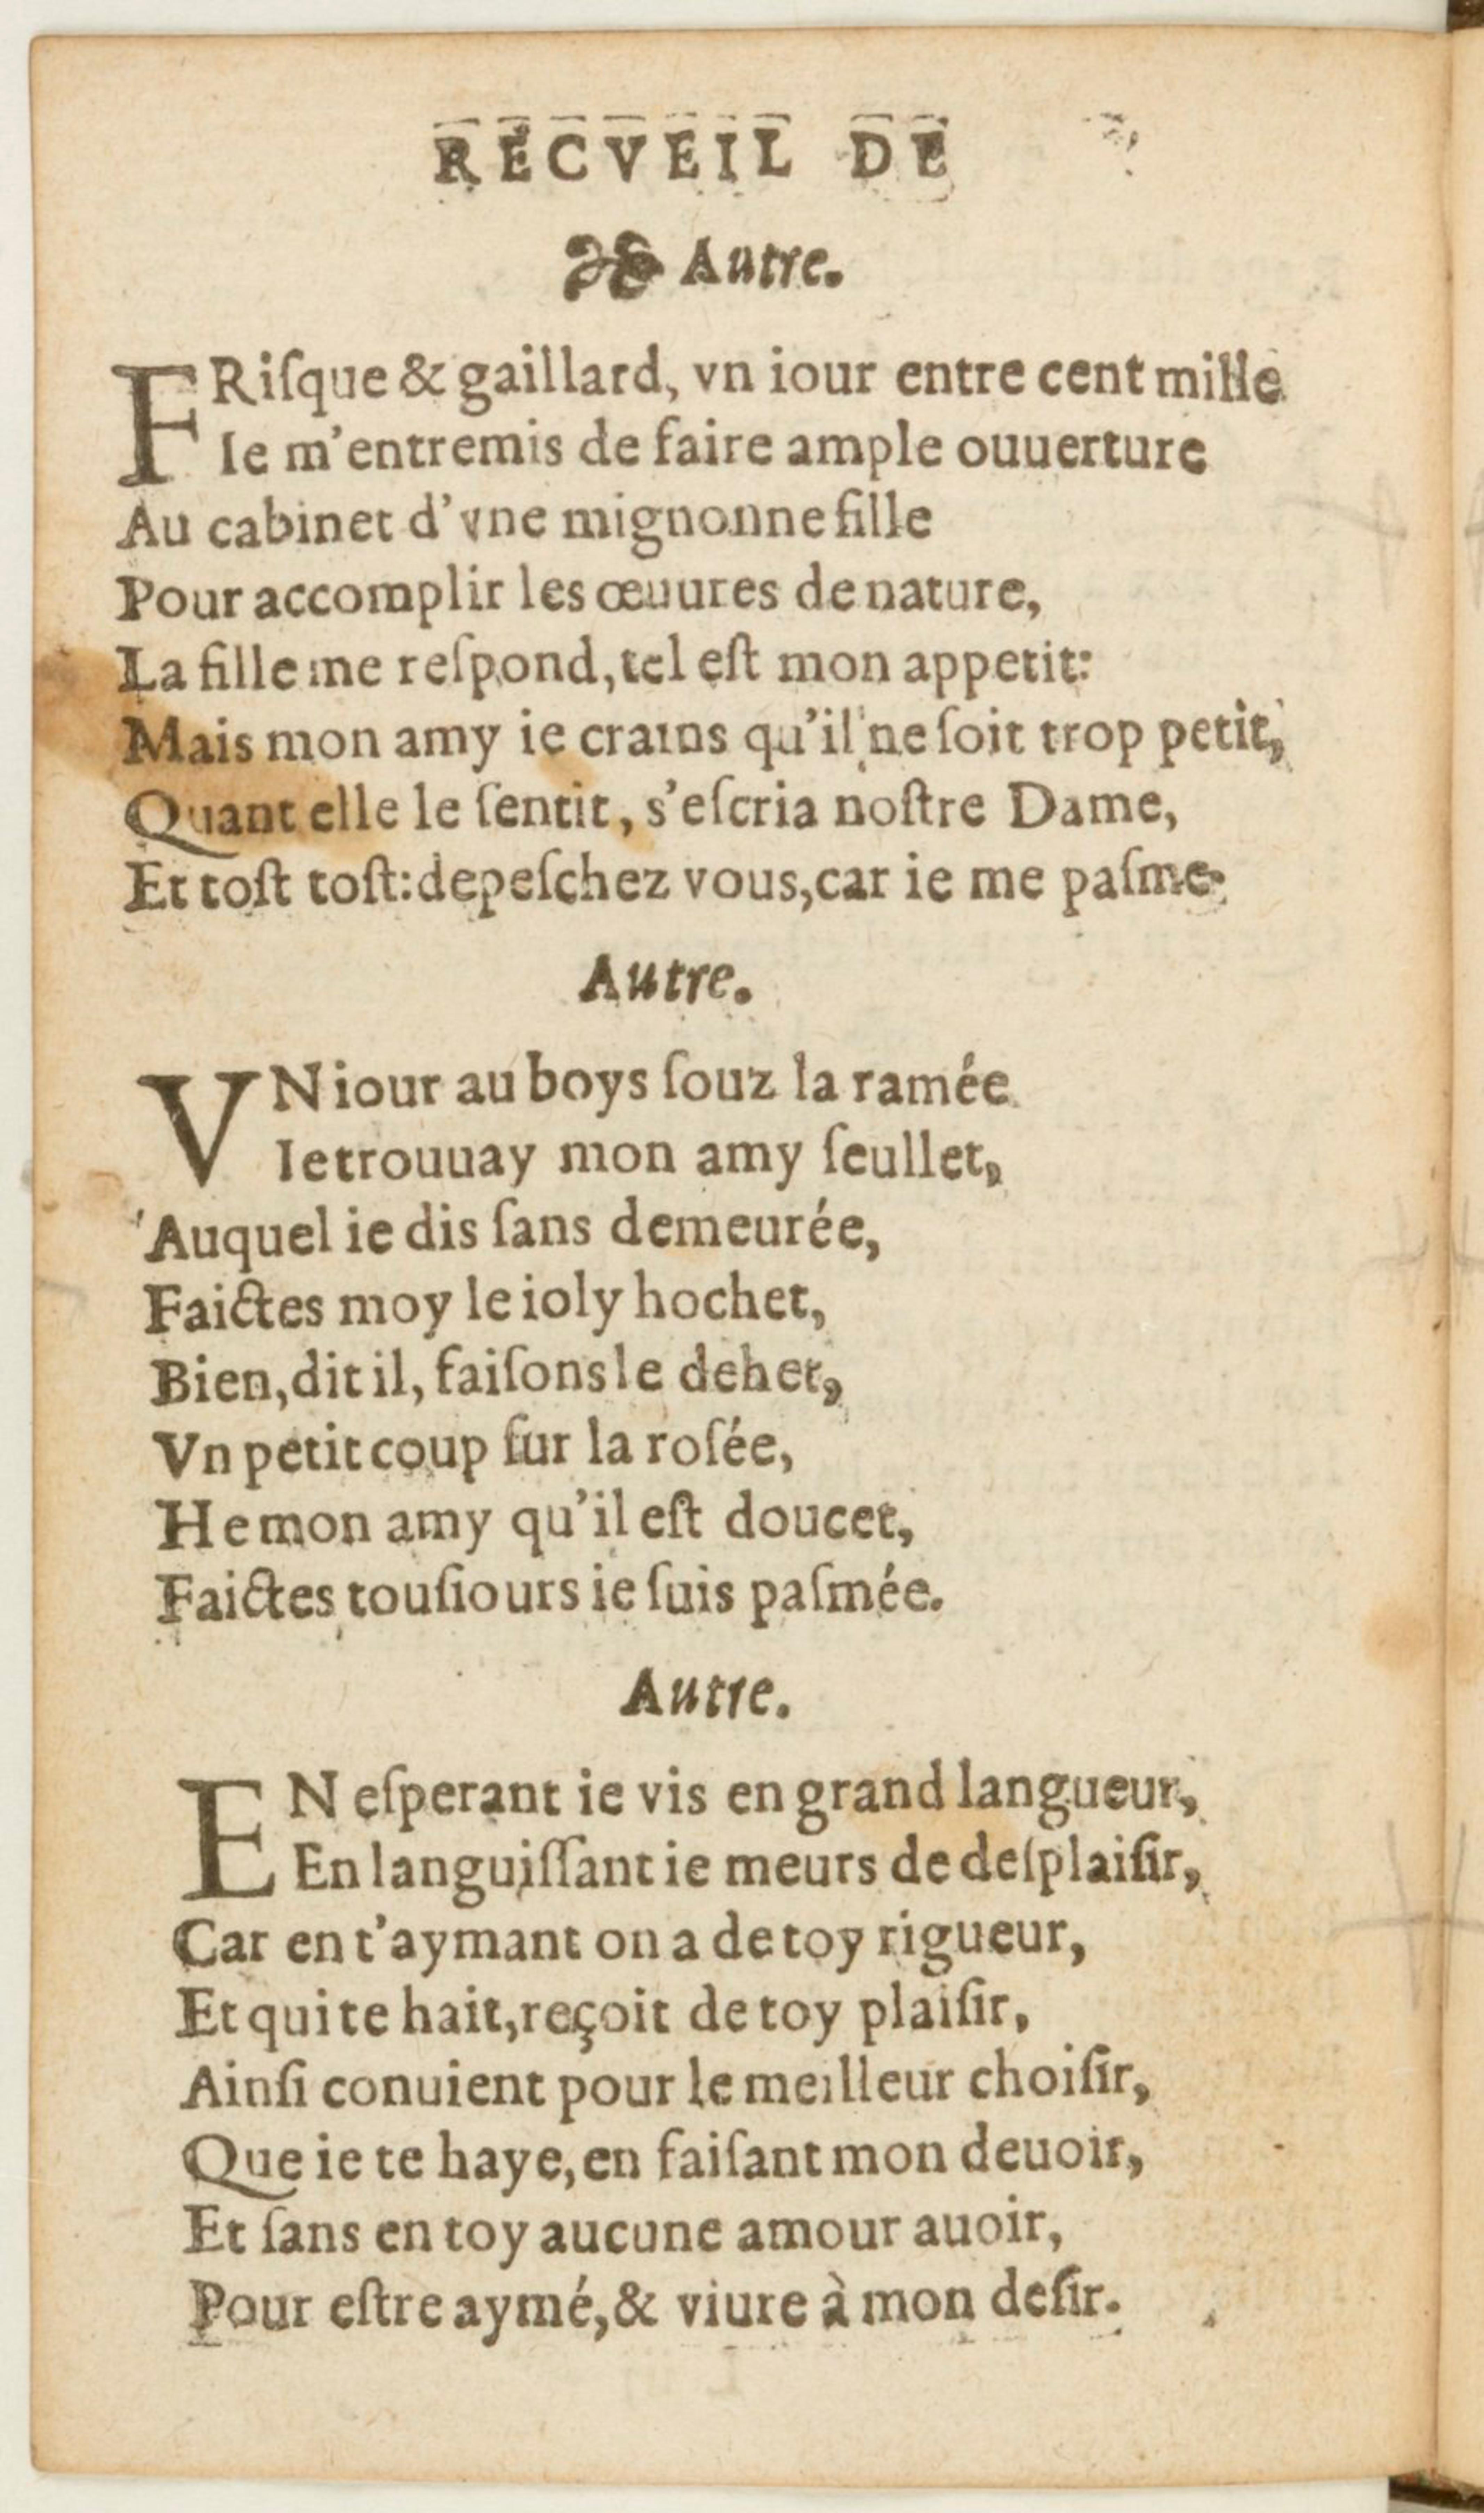 RECVEIL DE
Autre.
FRiſque & gaillard, vn iour entre cent mille
Ie m'entremis de faire ample ouuerture
Au cabinet d'vne mignonne fille
Pour accomplir les œuures de nature,
La fille me reſpond, tel eſt mon appetit:
Mais mon amy ie crains qu'il ne ſoit trop petit,
Quant elle le ſentit, s'eſcria noſtre Dame,
Et toſt toſt: depeſchez vous, car ie me paſme.
Autre.
VN iour au boys ſouz la ramée
Ie trouuay mon amy ſeullet,
Auquel ie dis ſans demeurée,
Faictes moy le ioly hochet,
Bien, dit il, faiſons le dehet,
Vn petit coup ſur la roſée,
He mon amy qu'il eſt doucet,
Faictes touſiours ie ſuis paſmée.
Autre.
EN eſperant ie vis en grand langueur,
En languiſſant ie meurs de deſplaiſir,
Car en t'aymant on a de toy rigueur,
Et qui te hait, reçoit de toy plaiſir,
Ainſi conuient pour le meilleur choiſir,
Que ie te haye, en faiſant mon deuoir,
Et ſans en toy aucune amour auoir,
Pour eſtre aymé, & viure à mon deſir.